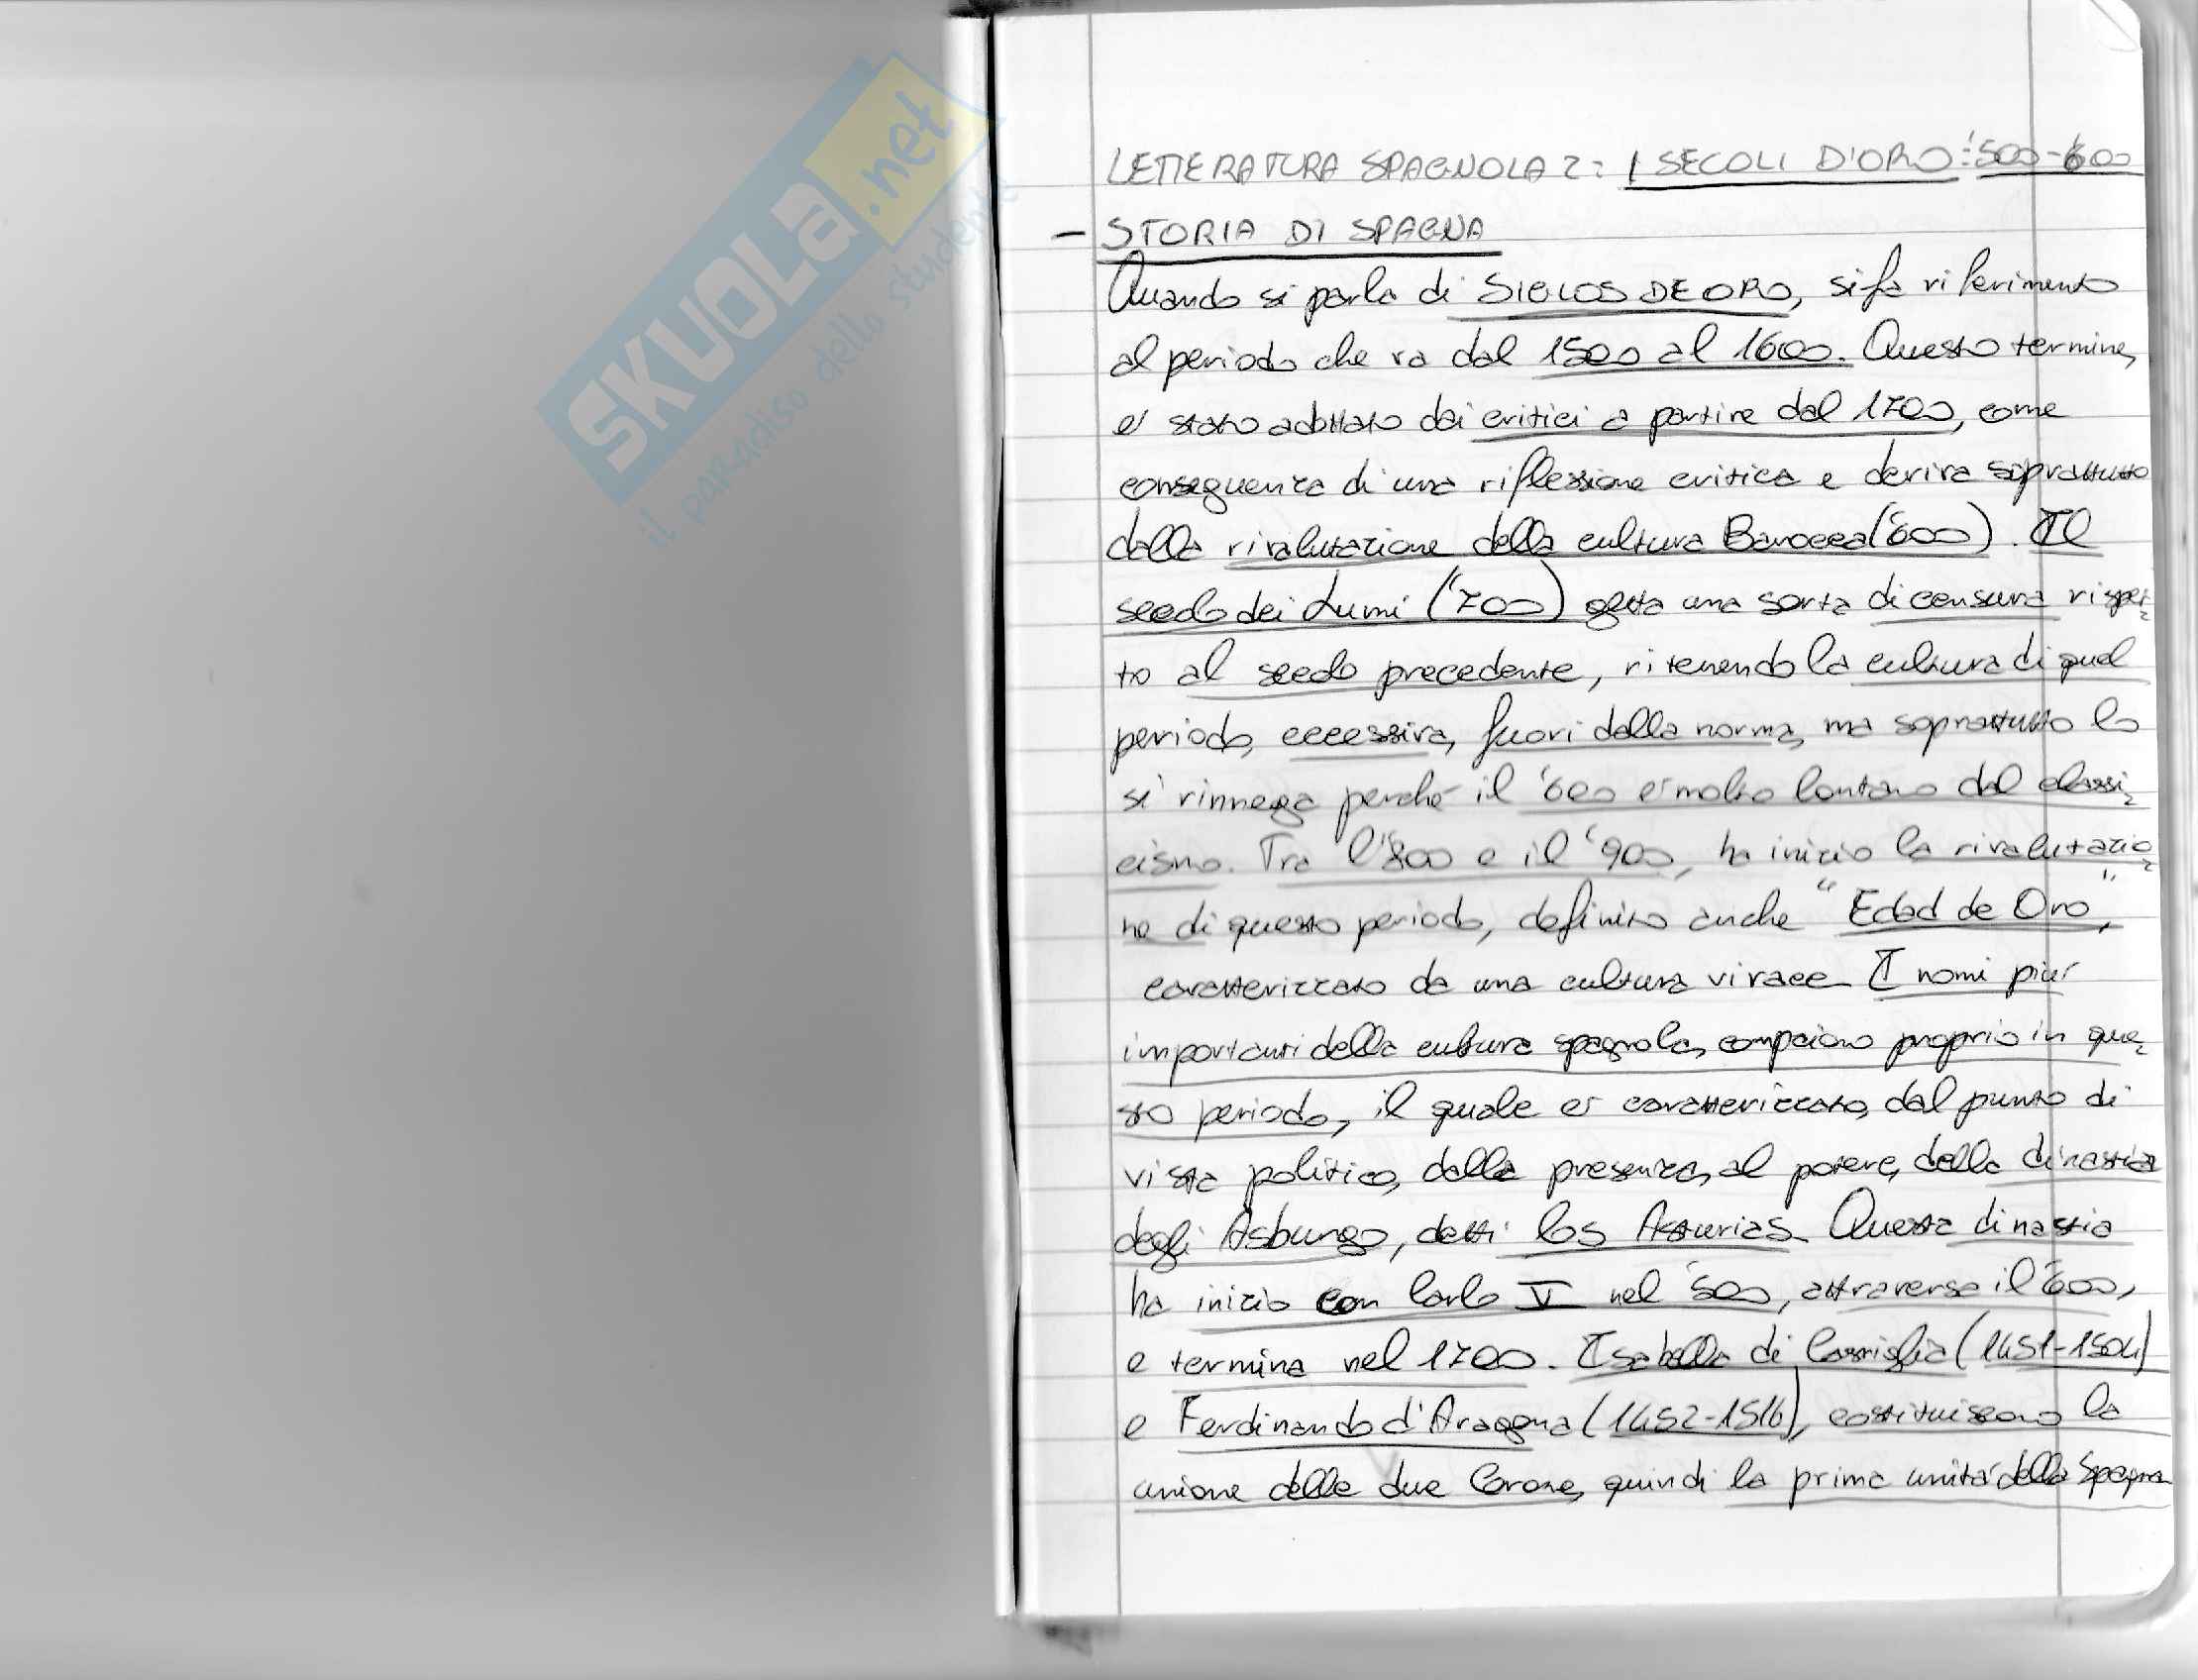 SKUOLA.net
il paradiso dello studente
LETTERATURA SPAGNOLA 2: I SECOLI D'ORO: '500-'600
- STORIA DI SPAGNA
Quando si parla di SIGLOS DE ORO, si fa riferimento
al periodo che va dal 1500 al 1600. Questo termine,
e' stato adottato dai critici a partire dal 1700, come
conseguenza di una riflessione critica e deriva soprattutto
dalla rivalutazione della cultura Barocca ('600). Il
secolo dei Lumi ('700) getta una sorta di censura rispet-
to al secolo precedente, ritenendo la cultura di quel
periodo, eccessiva, fuori dalla norma, ma soprattutto lo
si rinnega perché il '600 e' molto lontano dal classi-
cismo. Tra l'800 e il '900, ha inizio la rivalutazio-
ne di questo periodo, definito anche "Edad de Oro",
caratterizzato da una cultura vivace. I nomi piu'
importanti della cultura spagnola, compaiono proprio in que-
sto periodo, il quale e' caratterizzato, dal punto di
vista politico, dalla presenza, al potere, della dinastia
degli Asburgo, detti los Asturias. Questa dinastia
ha inizio con Carlo V nel '500, attraversa il '600,
e termina nel 1700. Isabella di Castiglia (1451-1504)
e Ferdinando d'Aragona (1452-1516), costituiscono la
unione delle due Corone, quindi la prima unita' della Spagna